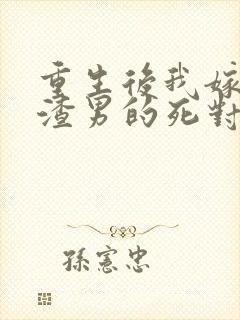 重生後我嫁
渣男的死對
孫憲忠